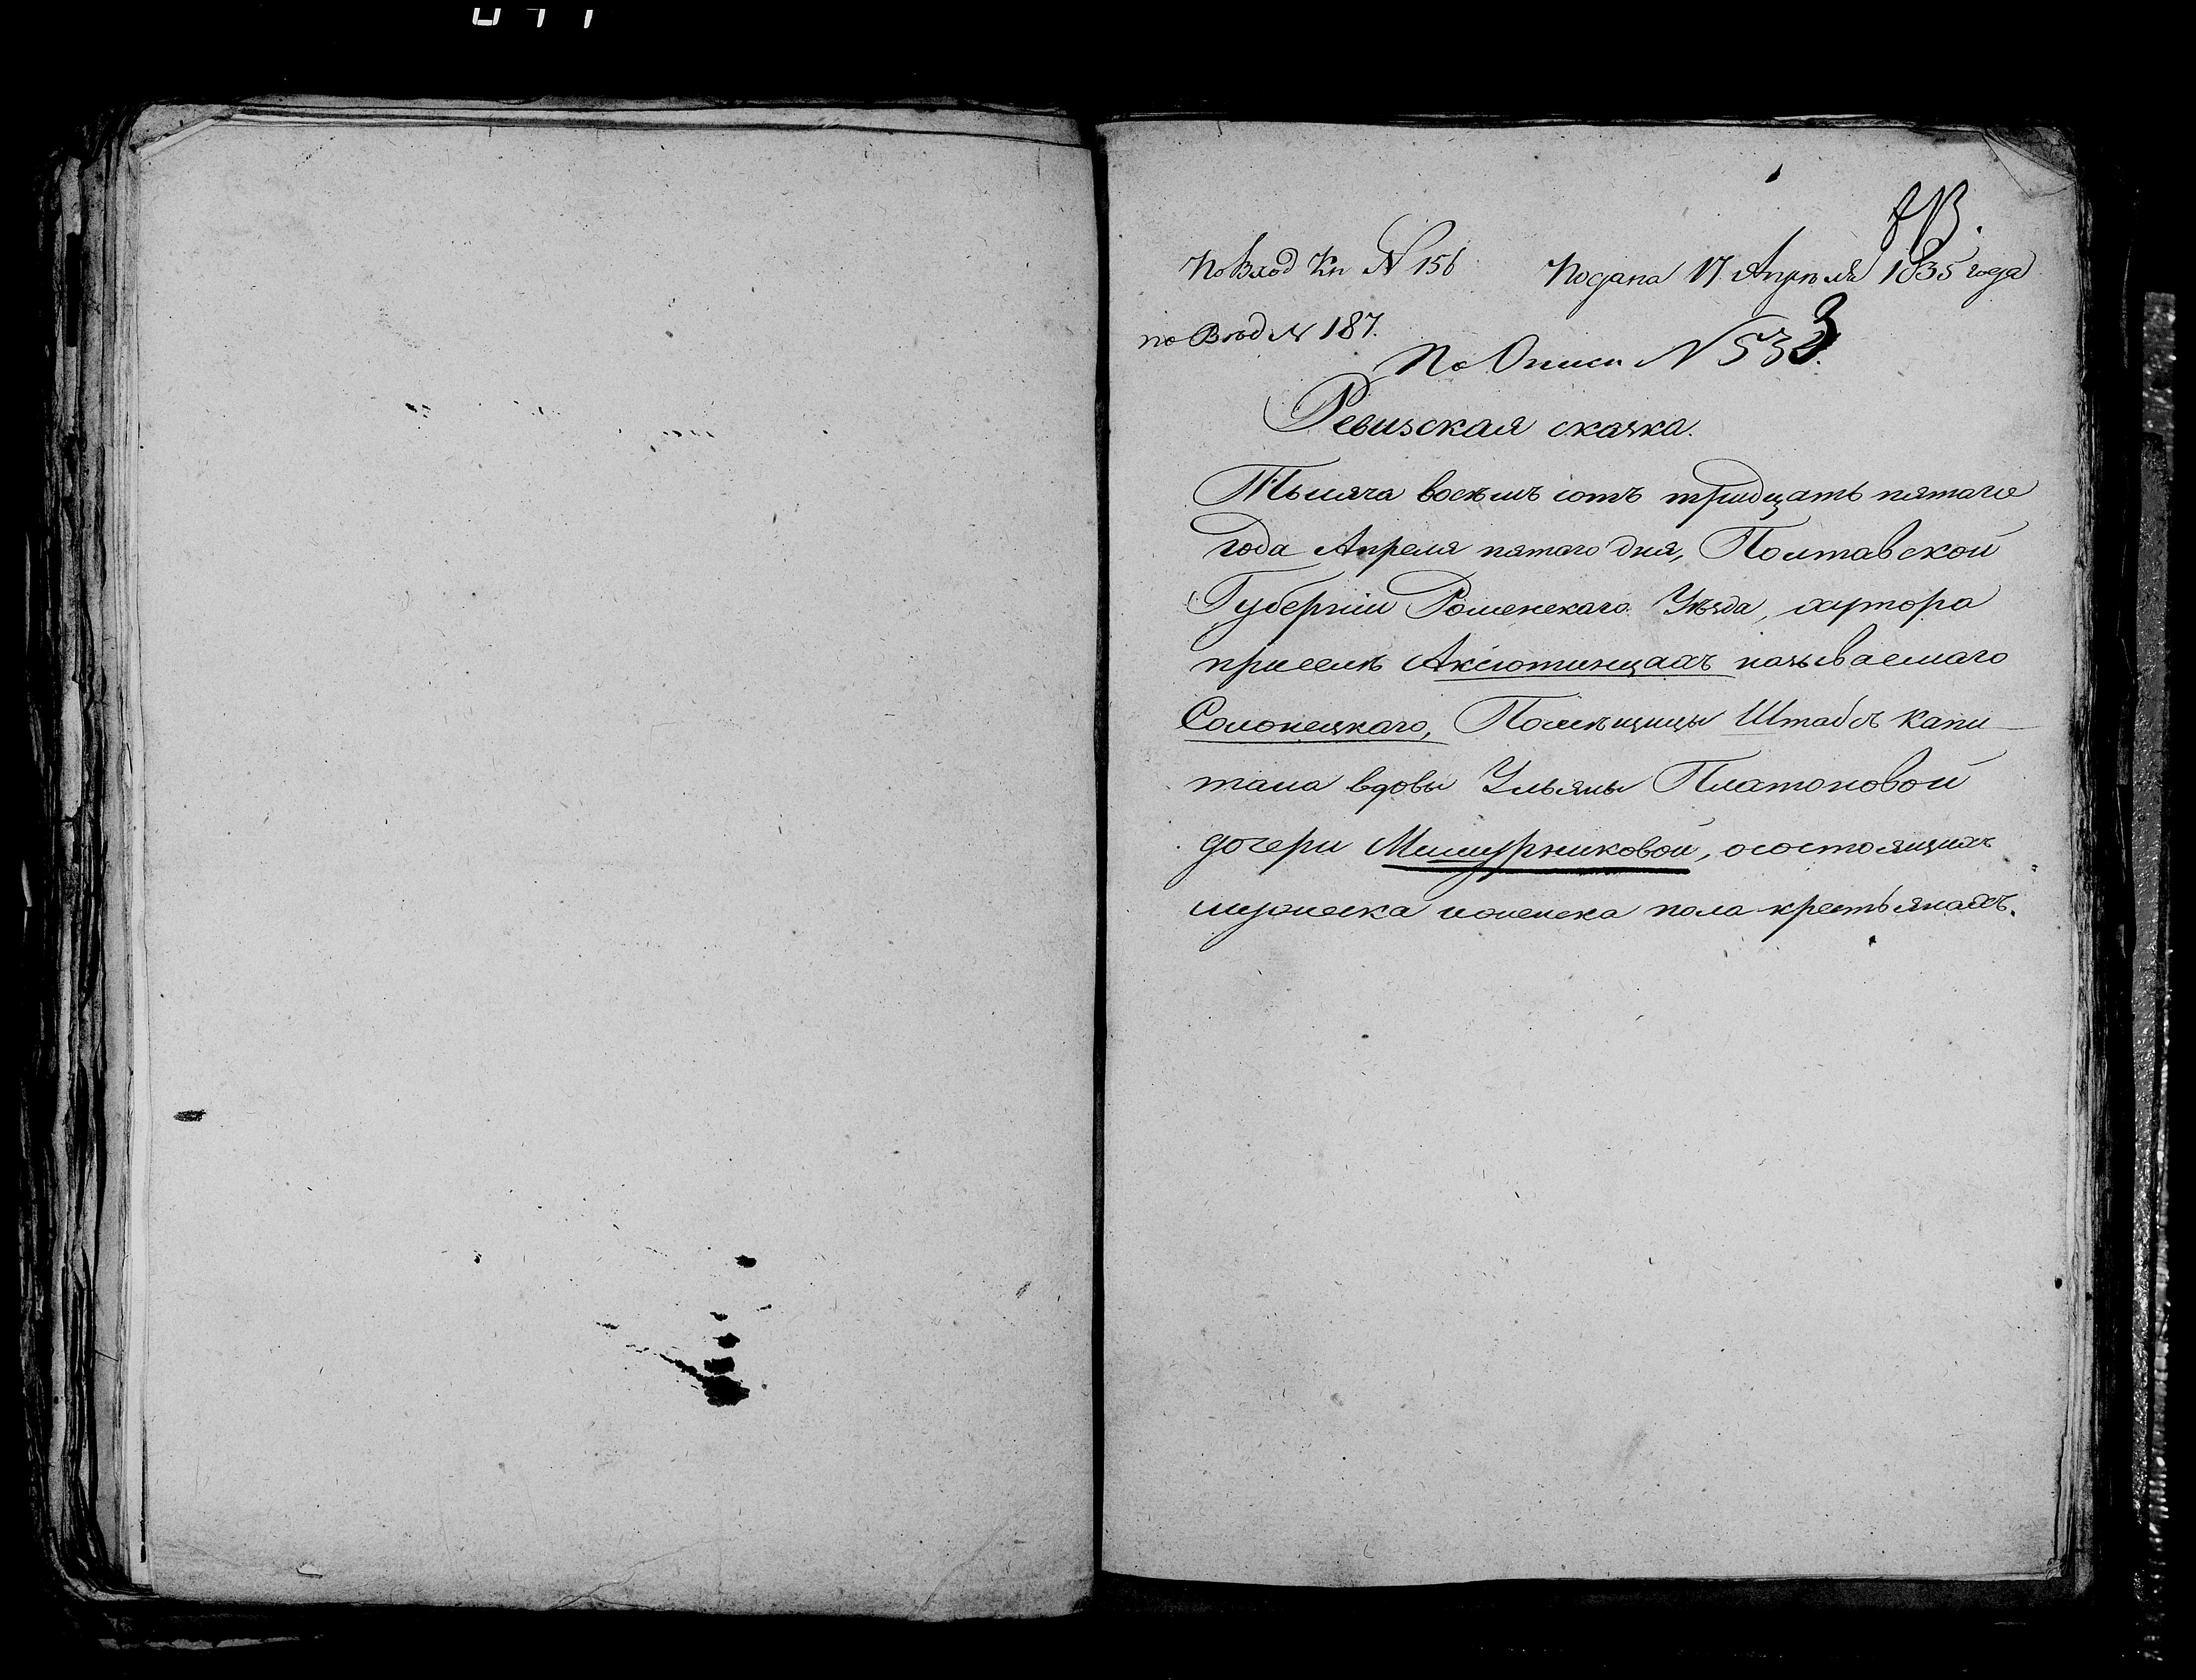 По Вход Кн № 156 Подана 17 Апрѣля 1835 года
по Вход № 187.
По Описи № 533.
Ревизская сказка.
Тысяча восѣмъ сотъ тридцать пятаго
года Апреля пятаго дня, Полтавской
Губерніи Роменскаго Уѣзда, хутора
приселѣ Аксютинцахъ называемаго
Солонецкаго, Помѣщицы Штабсъ капи-
тана вдовы Ульяны Платоновой
дочери Мишурниковой, осостоящихъ
мужеска иженска пола крестьянахъ.